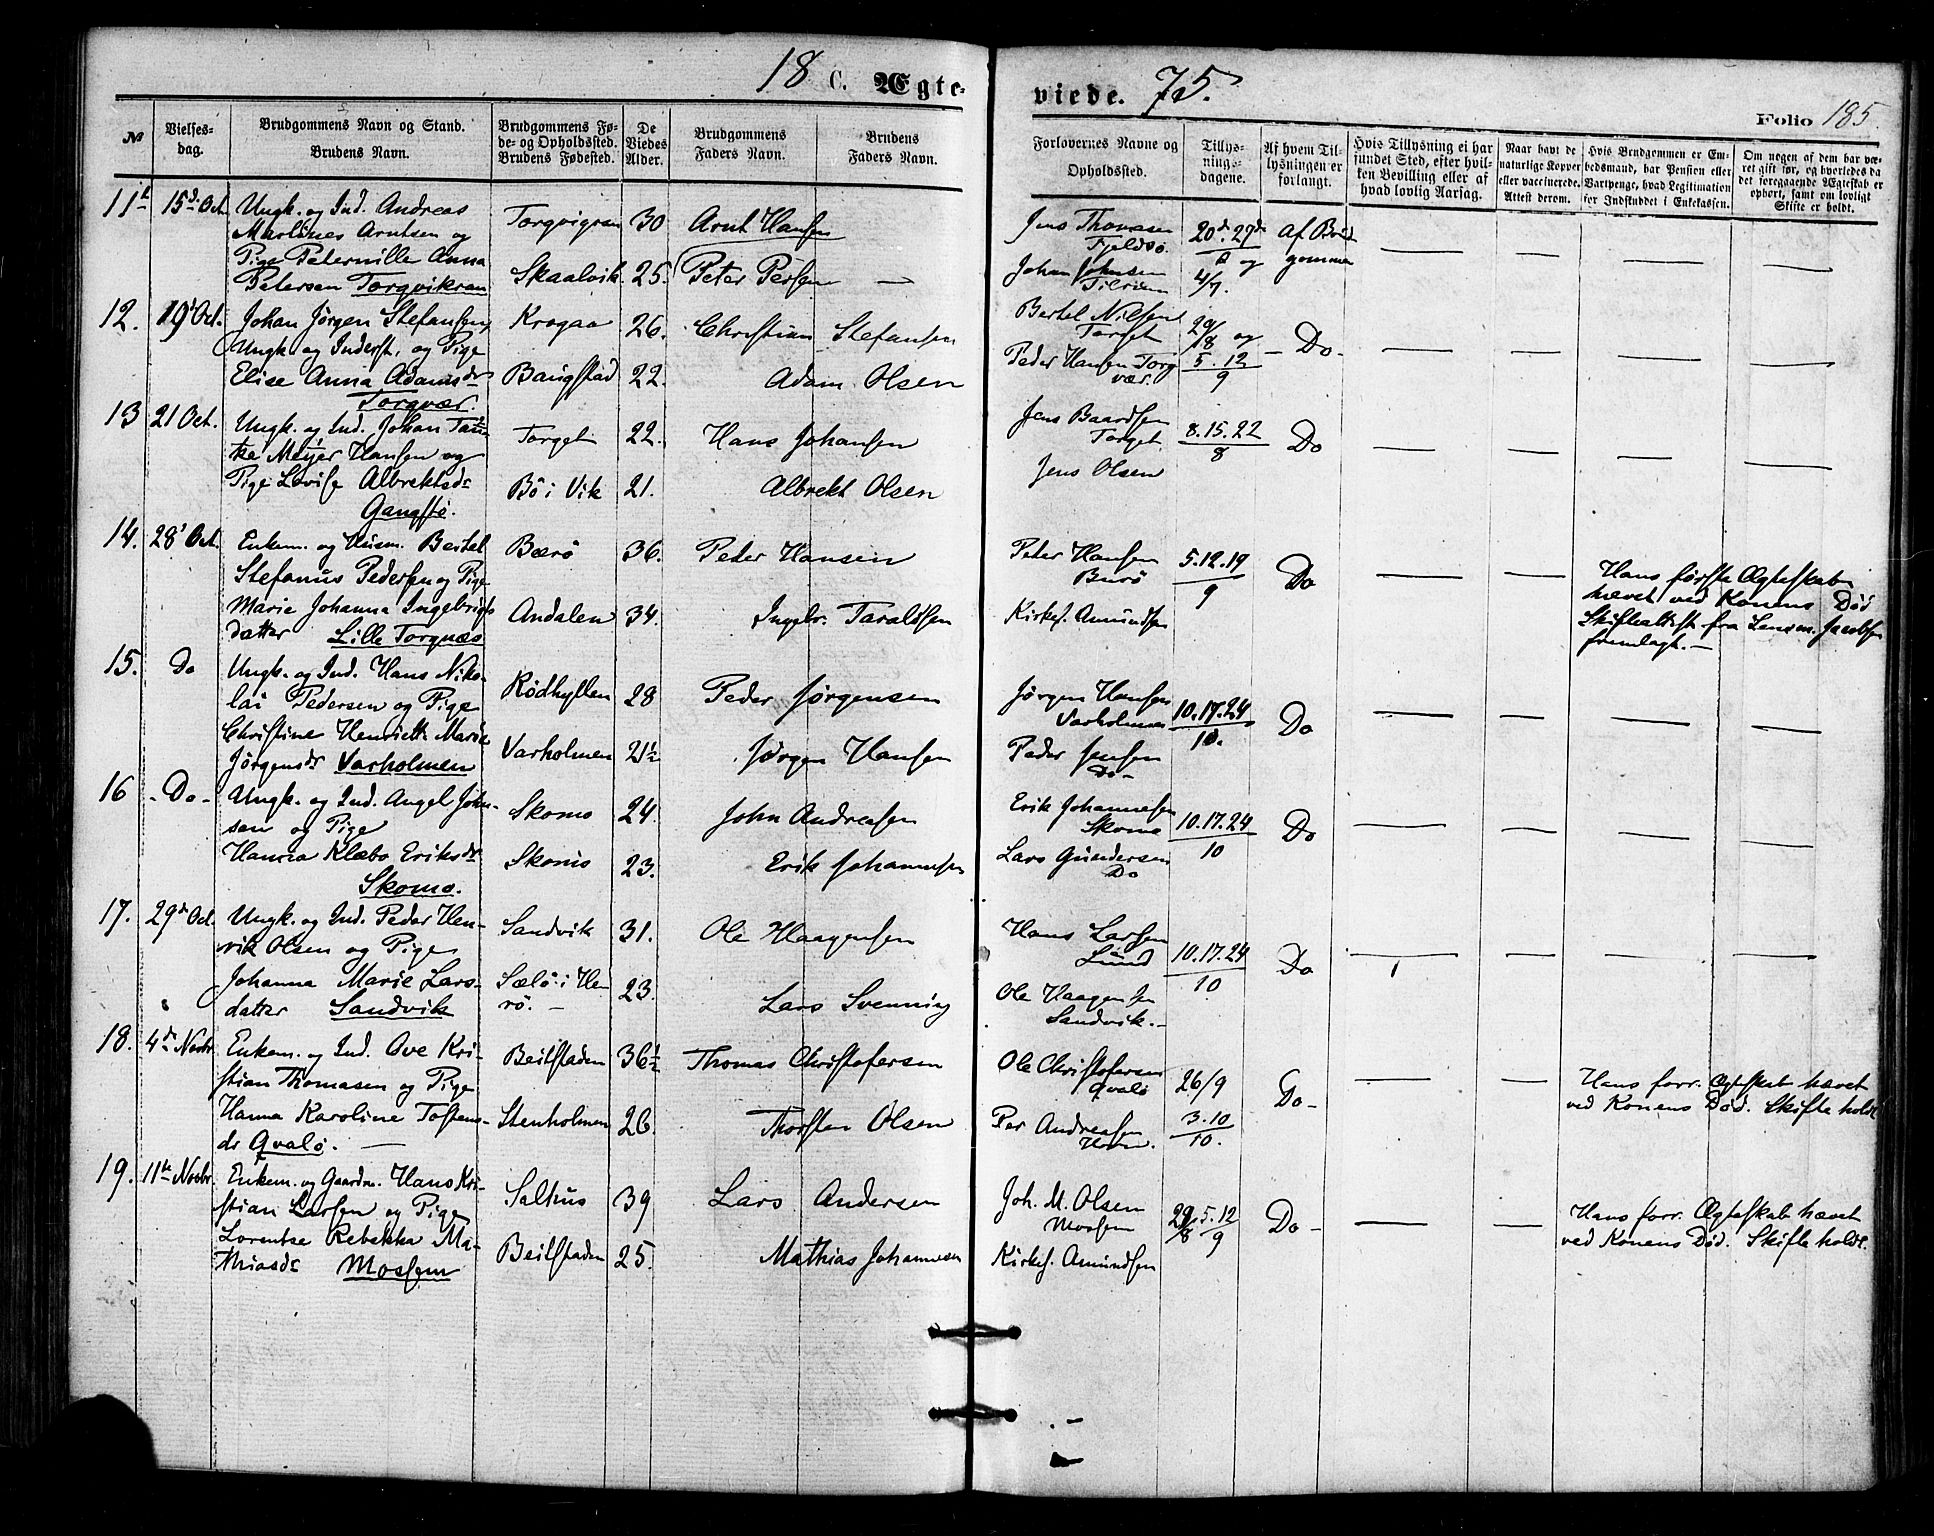 18 C. Ægte-
viede. 75.
Folio 185.
№
Vielses-
dag.
Brudgommens Navn og Stand.
Brudens Navn.
Brudgommens Fø-
de- og Opholdssted.
Brudens Fødested.
De
Viedes
Alder.
Brudgommens
Faders Navn.
Brudens
Faders Navn.
Forlovernes Navne og
Opholdssted.
Tillys-
nings-
dagene.
Af hvem Til-
lysningen er
forlangt.
Hvis Tillysning ei har
fundet Sted, efter hvil-
ken Bevilling eller af
hvad lovlig Aarsag.
Naar havt de
naturlige Kopper
eller vaccinerede.
Attest derom.
Hvis Brudgommen er Em-
bedsmand, har Pension eller
Vartpenge, hvad Legitimation
for Indskuddet i Enkekassen.
Om nogen af dem har væ-
ret gift før, og hvorledes da
det foregaaende Ægteskab er
ophørt, samt om lovligt
Skifte er holdt.
11 15de Oct. Ungk. og Ind. Andreas
Martines Arntsen og
Pige Peternille Anna
Petersen Torgvikran
Torgvigran 30 Arnt Hansen
Skaalvik 25. Peter Persen —
Jens Thomesen
Fjeldsø
Johan Johnsen
20de. 27de
og
4/7.
Af Brud
gommen
12. 19 Oct. Johan Jørgen Stefansen
Ungk og Inderst, og Pige
Elise Anna Adamsdr
Torgvær.
Krogaa 26. Christian Stefansen
Bangstad 22. Adam Olsen
Bertel Nilsen
Torget
Peder Hansen Torg
vær.
29/8 og
5.12
9
– Do –
13 21 Oct. Ungk. og Ind. Johan Tan-
ke Meyer Hansen og
Pige Lovise Albrektsdr
Gangstø.
Torget 22. Hans Johansen
Bö i Vik 21. Albrekt Olsen
Jens Baardsen
Torget
Jens Olsen
8.15.22
8
Do
14. 28' Oct. Enkem. og Husm. Bertel
Stefanus Pedersen og Pige
Marie Johanna Ingebrigts
datter Lille Torgnæs
Bærö 36. Peder Hansen
Andalen 34. Ingebr. Taraldsen
Peter Hansen
Burö
Kirkes. Amundsen
5.12.19
9
Do
Hans første Ægteskab
hævet ved Konens Död
Skifteattest fra Lensm. Jacobsen
fremlagt. —
15. Do Ungk. og Ind. Hans Niko-
lai Pedersen og Pige
Christine Henriette Marie
Jörgensdr Varholmen
Rödhyllen 28 Peder Jørgensen
Varholmen 21½ Jørgen Hansen
Jørgen Hansen
Varholmen
Peder Jensen
Do –
10.17.24
10.
Do
16 – Do – Ungk. og Ind. Angel John-
sen og Pige
Hanna Klæbo Eriksdr
Skomo.
Skomo 24. John Andreasen
Skomo 23. Erik Johannesen
Erik Johannesen
Skomo
Lars Gundersen
Do
10.17.24
10
Do
17. 29de Oct. Ungk. og Ind. Peder Hen-
rik Olsen og Pige
Johanna Marie Lars-
datter Sandvik
Sandvik 31. Ole Haagensen
Sælö i He
rö. — 23. Lars Svenning
Hans Larsen
Lund
Ole Haagensen
Sandvik. —
10.17.24
10
Do
18. 4de Novbr. Enkem. og Ind. Ove Kri-
stian Thomasen og Pige
Hanna Karoline Tostens-
dr Qvalö. —
Beitstaden 36½ Thomas Christofersen
Stenholmen 26. Thorsten Olsen
Ole Christofersen
Qvalö
Per Andreasen
26/9
3.10
10.
Do –
Hans forr. Ægteskab hævet
ved Konens Död. Skifte holdt
19. 11te Novbr. Enkem. og Gaardm. Hans Kri-
stian Larsen og Pige
Lorentse Rebekka Ma-
thiasdr Mosjem
Salhus 39 Lars Andersen
Beitstaden 25. Mathias Johannesen
Joh. M. Olsen
Mosjem
Kirkes. Amundsen
29/8 5.12
9
Do –
Hans forr. Ægteskab hævet
ved Konens Död. Skifte holdt.